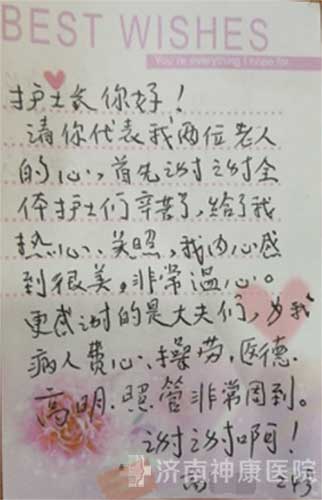 BEST WISHES
You're everything I hope for.
护士长你好！
请你代表我两位老人
的心，首先谢谢全
体护士们辛苦了，给了我
热心、关照，我内心感
到很美，非常温心。
更感谢的是大夫们，为我
病人费心、操劳，医德
高明、照管非常周到。
谢谢啊！
济南神康医院